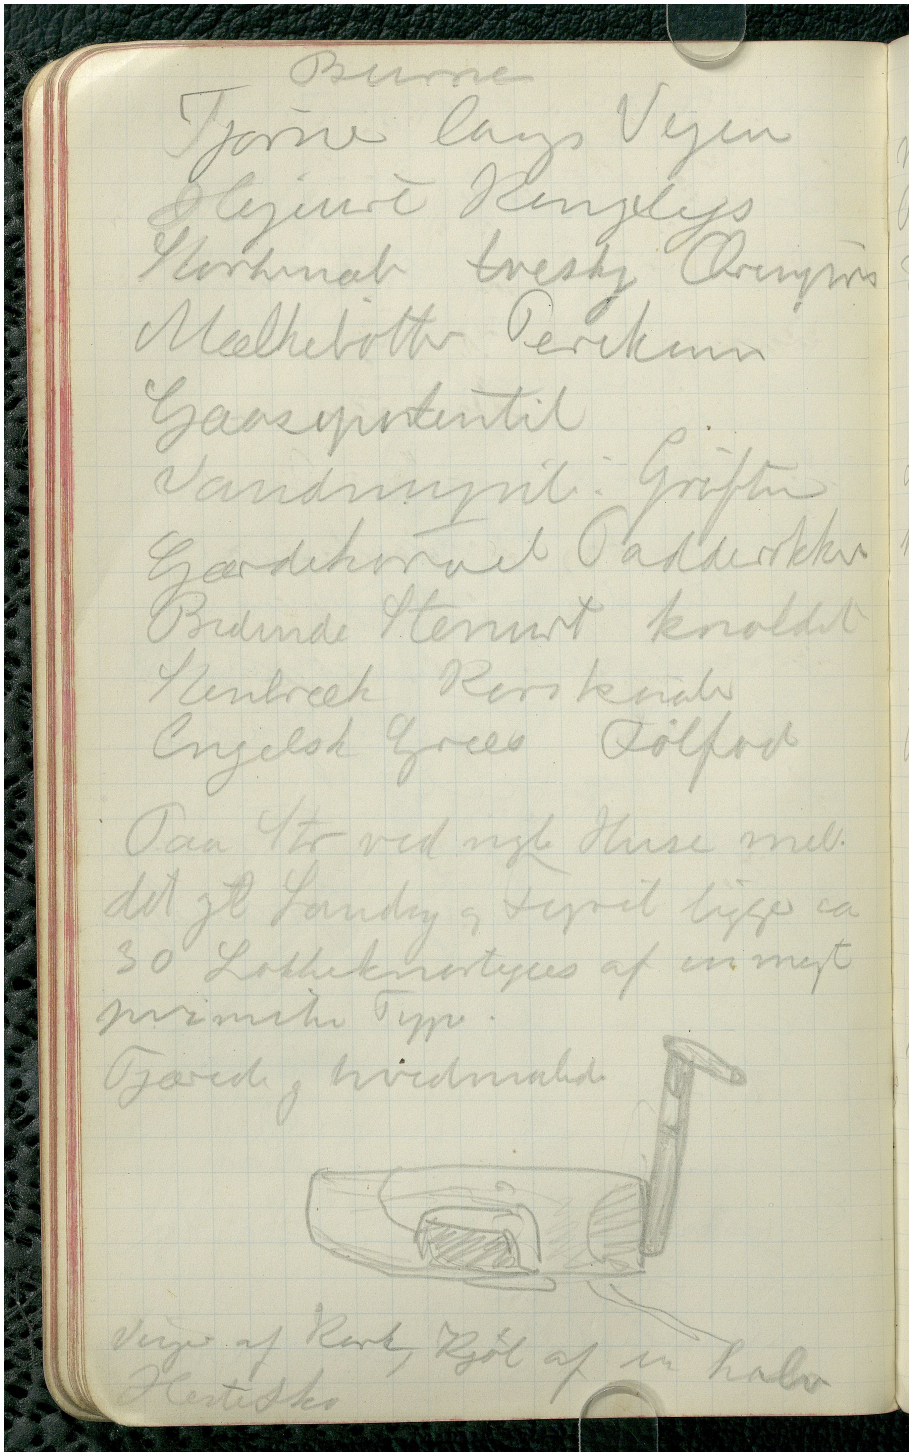 Burre
Tjørne langs Vejen
Slejurt Kongelys
Storkenæb tvesky Ørenpris
Mælkebøtter Perikum
Gaasepotentil
Vandmynte i Grøften
Gærdekørvel Padderokker
Bidende Stenurt knoldet
Stenbræk Rørs
Engelsk Græs Følfod
Paa Str ved Huse mel.
det gl og ligge ca
30 af en meget
primitiv Type.
Tjærede og hvidmalede
af Kork, Kjøl af en halv
Hestesko